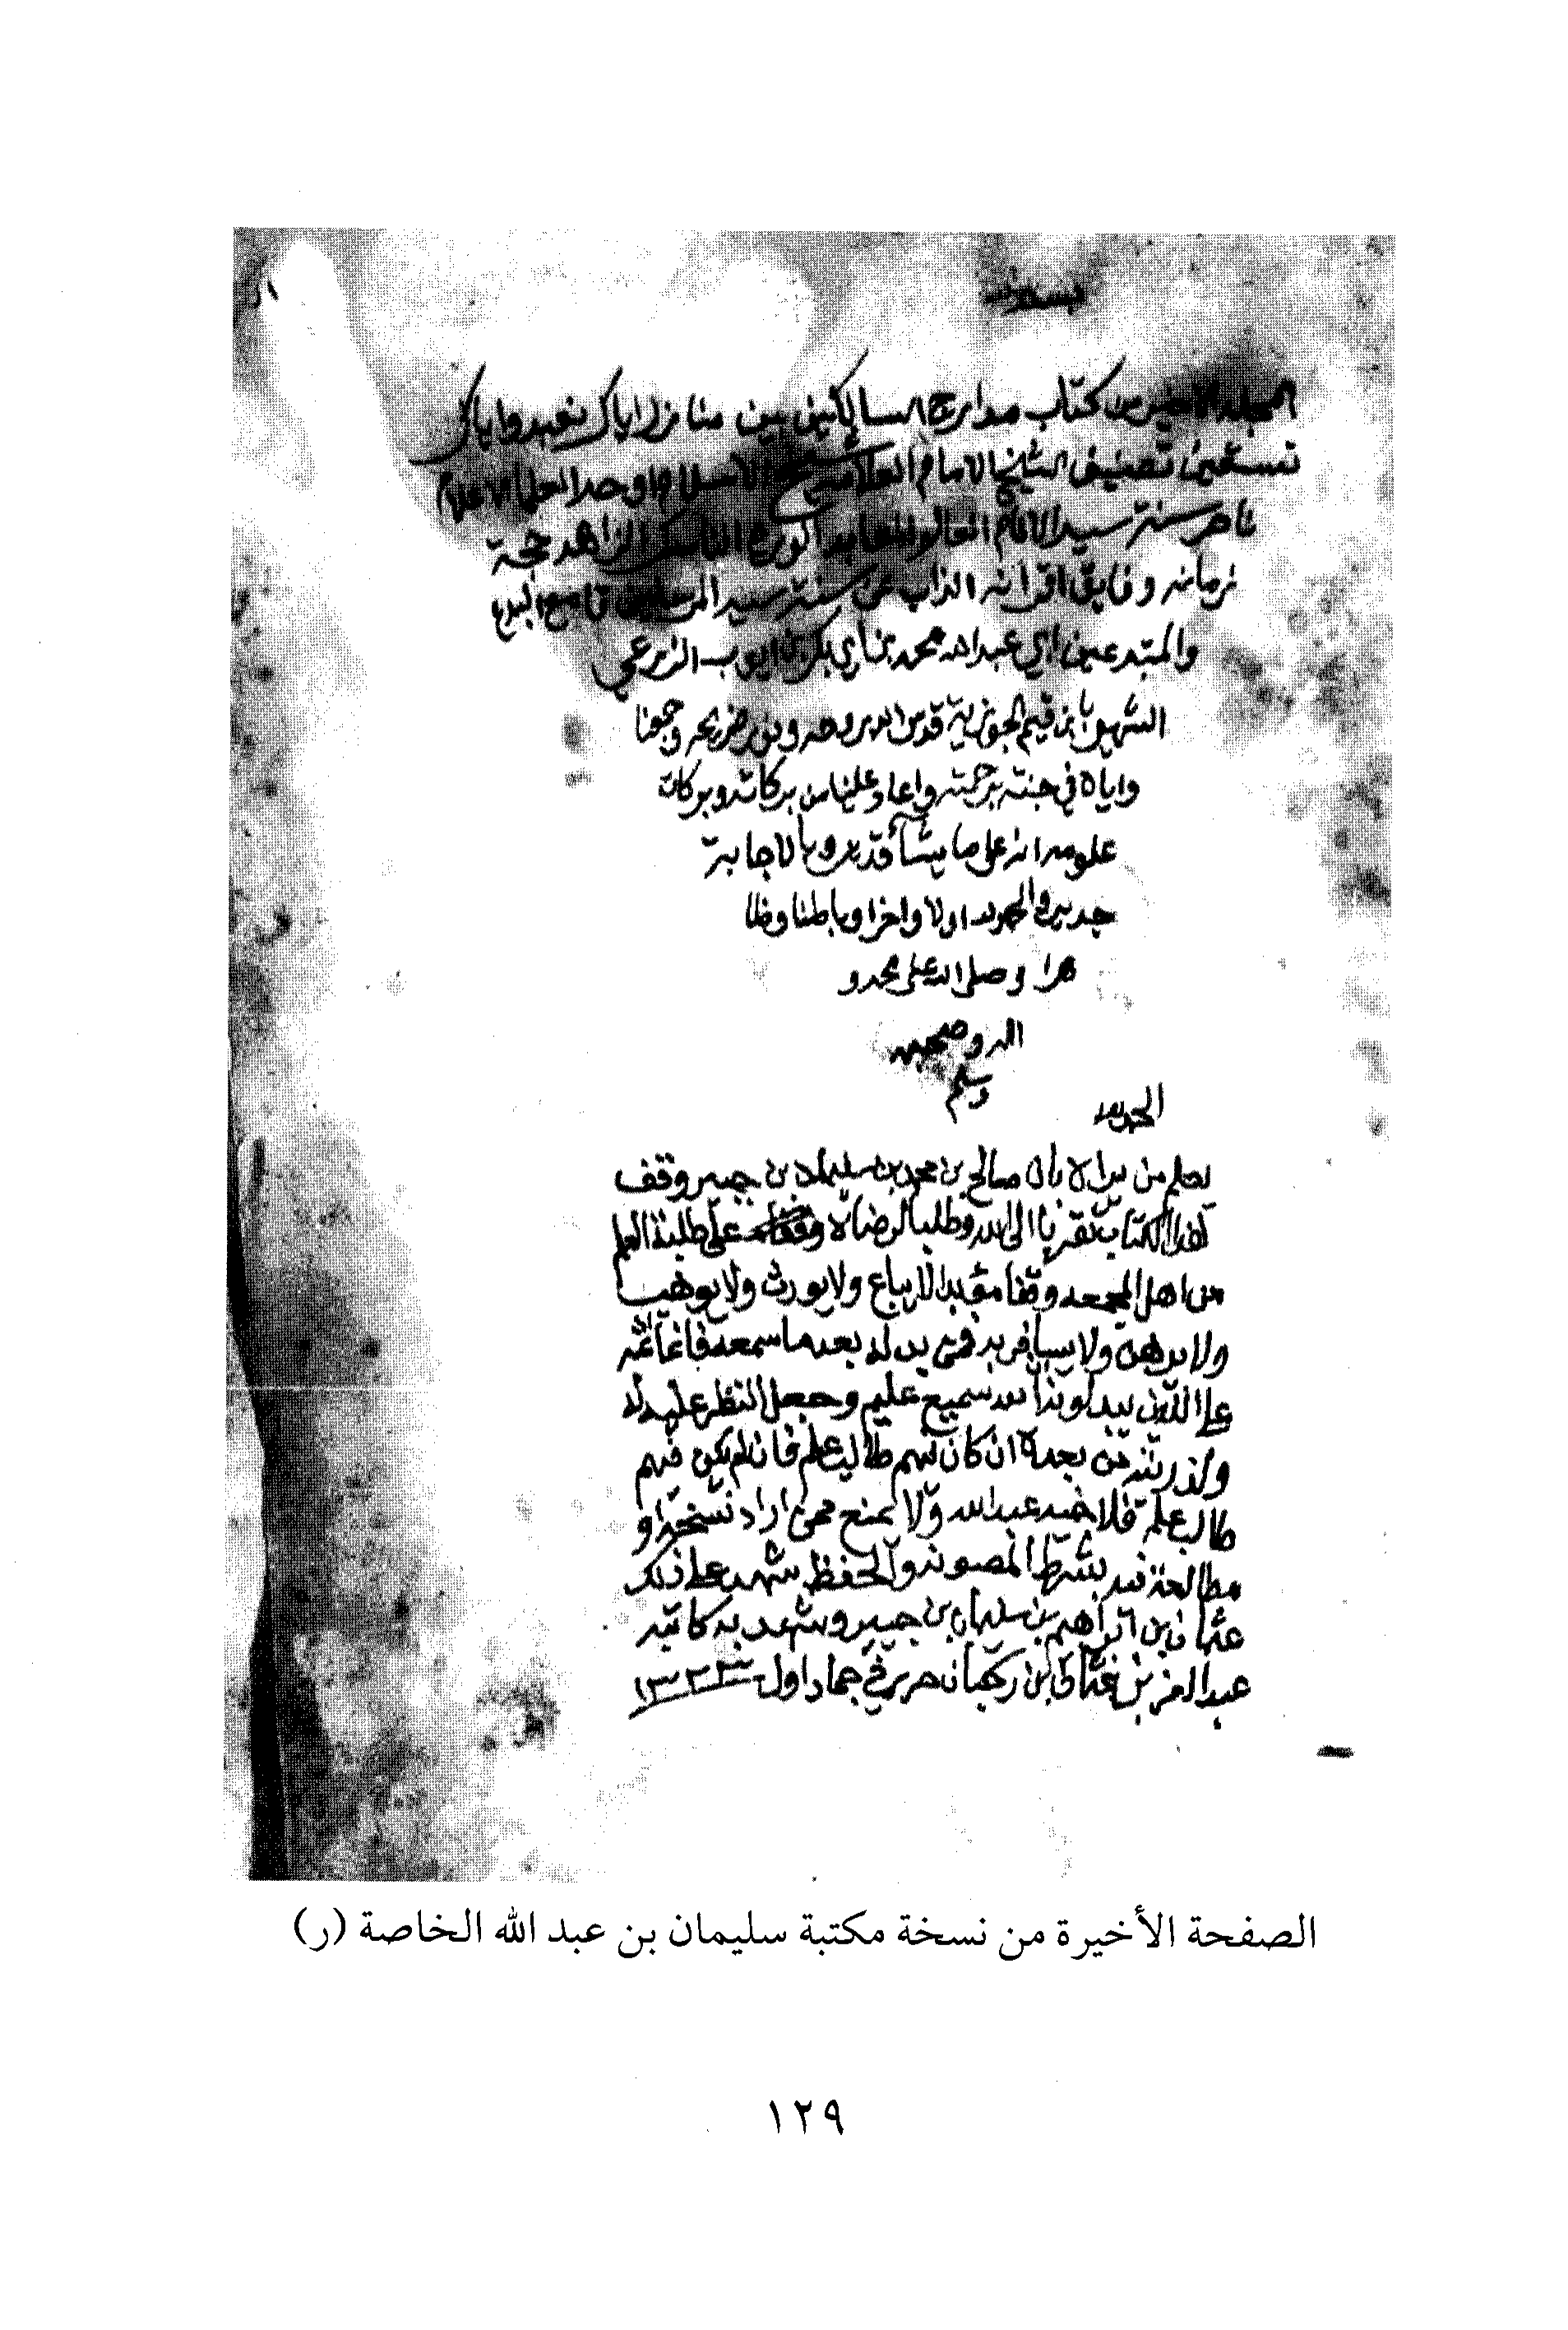 المجلد الاخير من كتاب مدارج السالكين بين منازل اياك نعبد واياك
نستعين تصنيف الشيخ الامام العلامة شيخ الاسلام اوحد العلما الاعلام
ناصر سنة سيد الانام العالم العابد الورع الناسك الزاهد حجة
زمانه وفايق اقرانه الذاب عن سنة سيد المرسلين قامع البدع
والمبتدعين ابي عبد الله محمد بن ابي بكر بن ايوب الزرعي
الشهير بابن قيم الجوزية قدس الله روحه ونور ضريحه وجمعنا
واياه في جنته برحمته واعاد علينا من بركاته وبركات
علومه انه على ما يشآ قدير وبالاجابة
جدير والحمد لله اولا واخرا وباطنا وظا
هرا وصلى الله على محمد و
اله وصحبه
وسلم
الحمد لله
يعلم من يراه بان صالح بن محمد بن سليمان بن جبير وقف
هذا الكتاب تقربا الى الله وطلبا لرضاه على طلبة العلم
من اهل المجمعه وقفا مؤبدا لا يباع ولا يورث ولا يوهب
ولا يرهن ولا يسافر به فمن بدله بعد ما سمعه فانما اثمه
على الذين يبدلونه ان الله سميع عليم وجعل النظر عليه له
ولذريته من بعده ان كان فيهم طالب علم فان لم يكن فيهم
طالب علم فلاخيه عبد الله ولا يمنع من اراد نسخه او
مطالعة فيه بشرط الصون والحفظ شهد على ذلك
عثمان بن ابراهيم بن سليمان بن جبير وشهد به كاتبه
عبد العزيز بن بن ركبان حرر في جماد اول ١٣٢٣
الصفحة الأخيرة من نسخة مكتبة سليمان بن عبد الله الخاصة (ر)
١٢٩